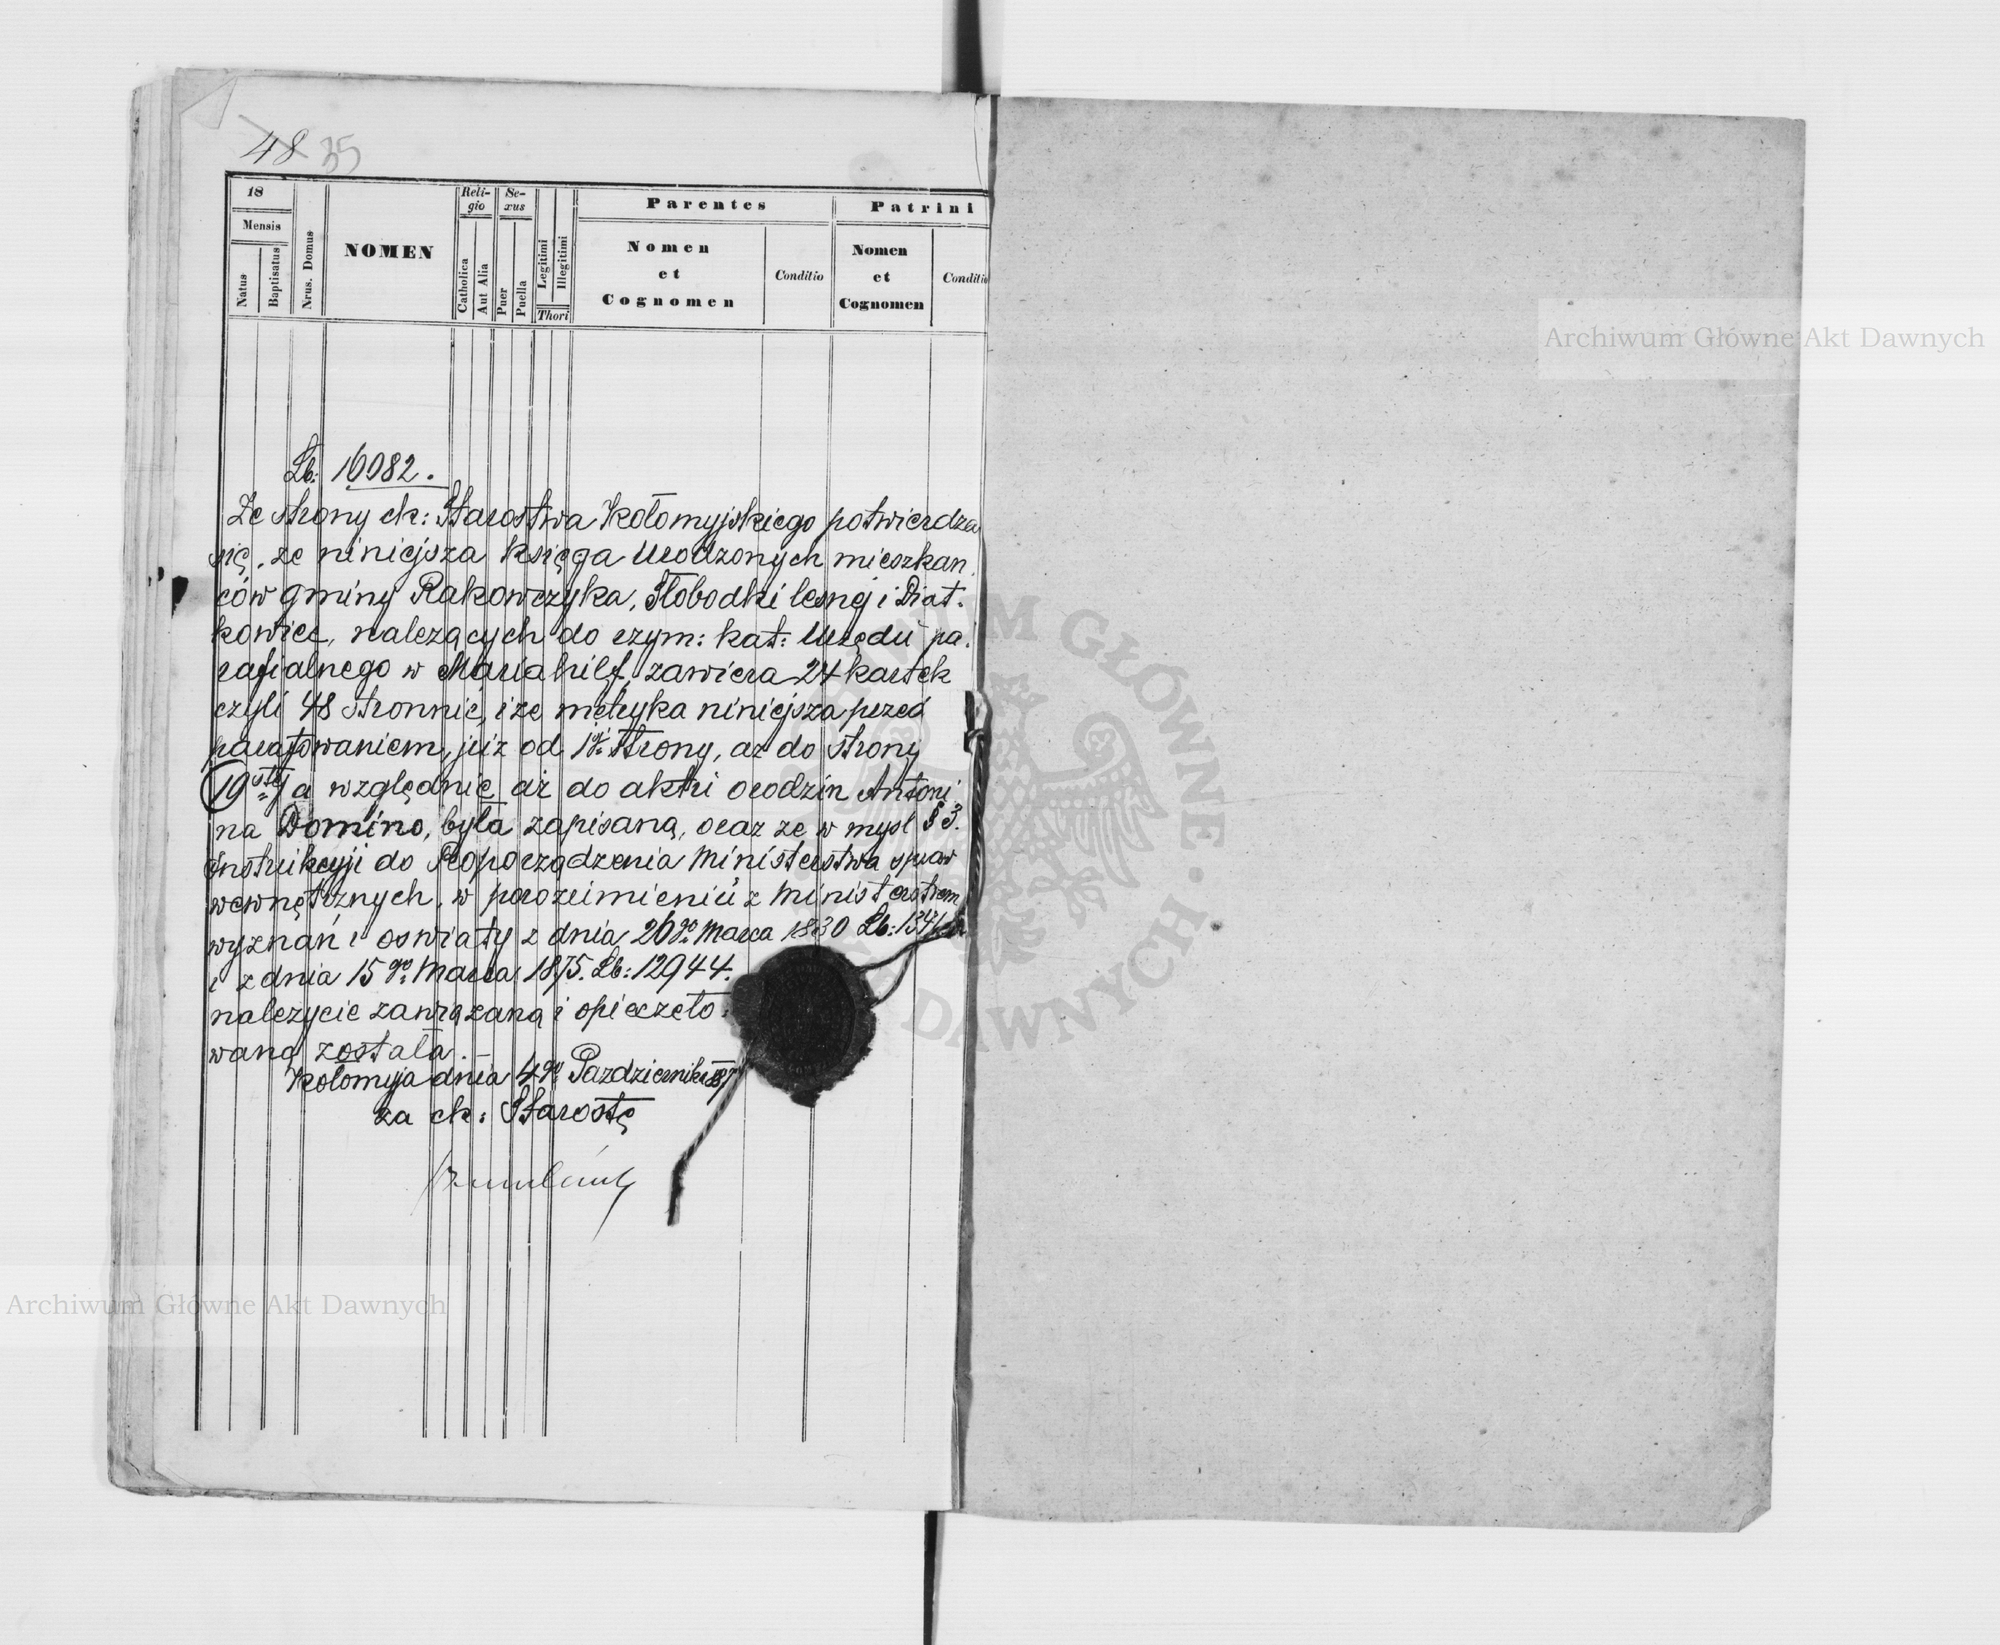 48 35
18
Mensis
Natus
Baptisatus
Nrus. Domus
NOMEN
Reli-
gio
Catholica
Aut Alia
Se-
xus
Puer
Puella
Legitimi
Illegitimi
Thori
Parentes
Nomen
et
Cognomen
Conditio
Patrini
Nomen
et
Cognomen
Conditio
Lb: 16082.
Ze strony ck: Starostwa Kołomyjskiego potwierdza
się, ze niniejsza księga Urodzonych mieszkan
ców gminy Rakowczyka, Słobodki lesnej i Diat:
kowiec, nalezących do rzym: kat: Urzędu pa:
rafialnego w Mariahilf, zawiera 24 kartek
czyli 48 stronnic, i ze metryka niniejsza przed
parafowaniem, juz od 1ej strony, az do strony
19stej a względnie az do aktu urodzin Antoni
na Domino, była zapisaną, oraz ze w mysl § 3.
Instrukcyji do Rosporządzenia Ministerstwa spraw
wewnętrznych, w porozumieniu z Ministerstwem
wyznań i oswiaty z dnia 26go Marca 1830 Lb: 1341
i z dnia 15go Marca 1875. Lb: 12944.
nalezycie zawiązaną i opieczęto:
waną została.
Kołomyja dnia 4go Pazdziernika
za ck: Starostę
Archiwum Główne Akt Dawnych
Archiwum Główne Akt Dawnych
ARCHIWUM GŁÓWNE AKT DAWNYCH